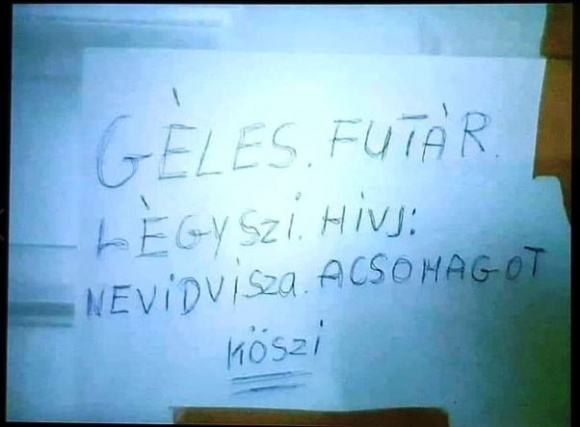 GÈLES. FUTÀR.
LÈGYSZi. HiVJ:
NEViDViSZa. ACSOMAGOT
KÖSZi